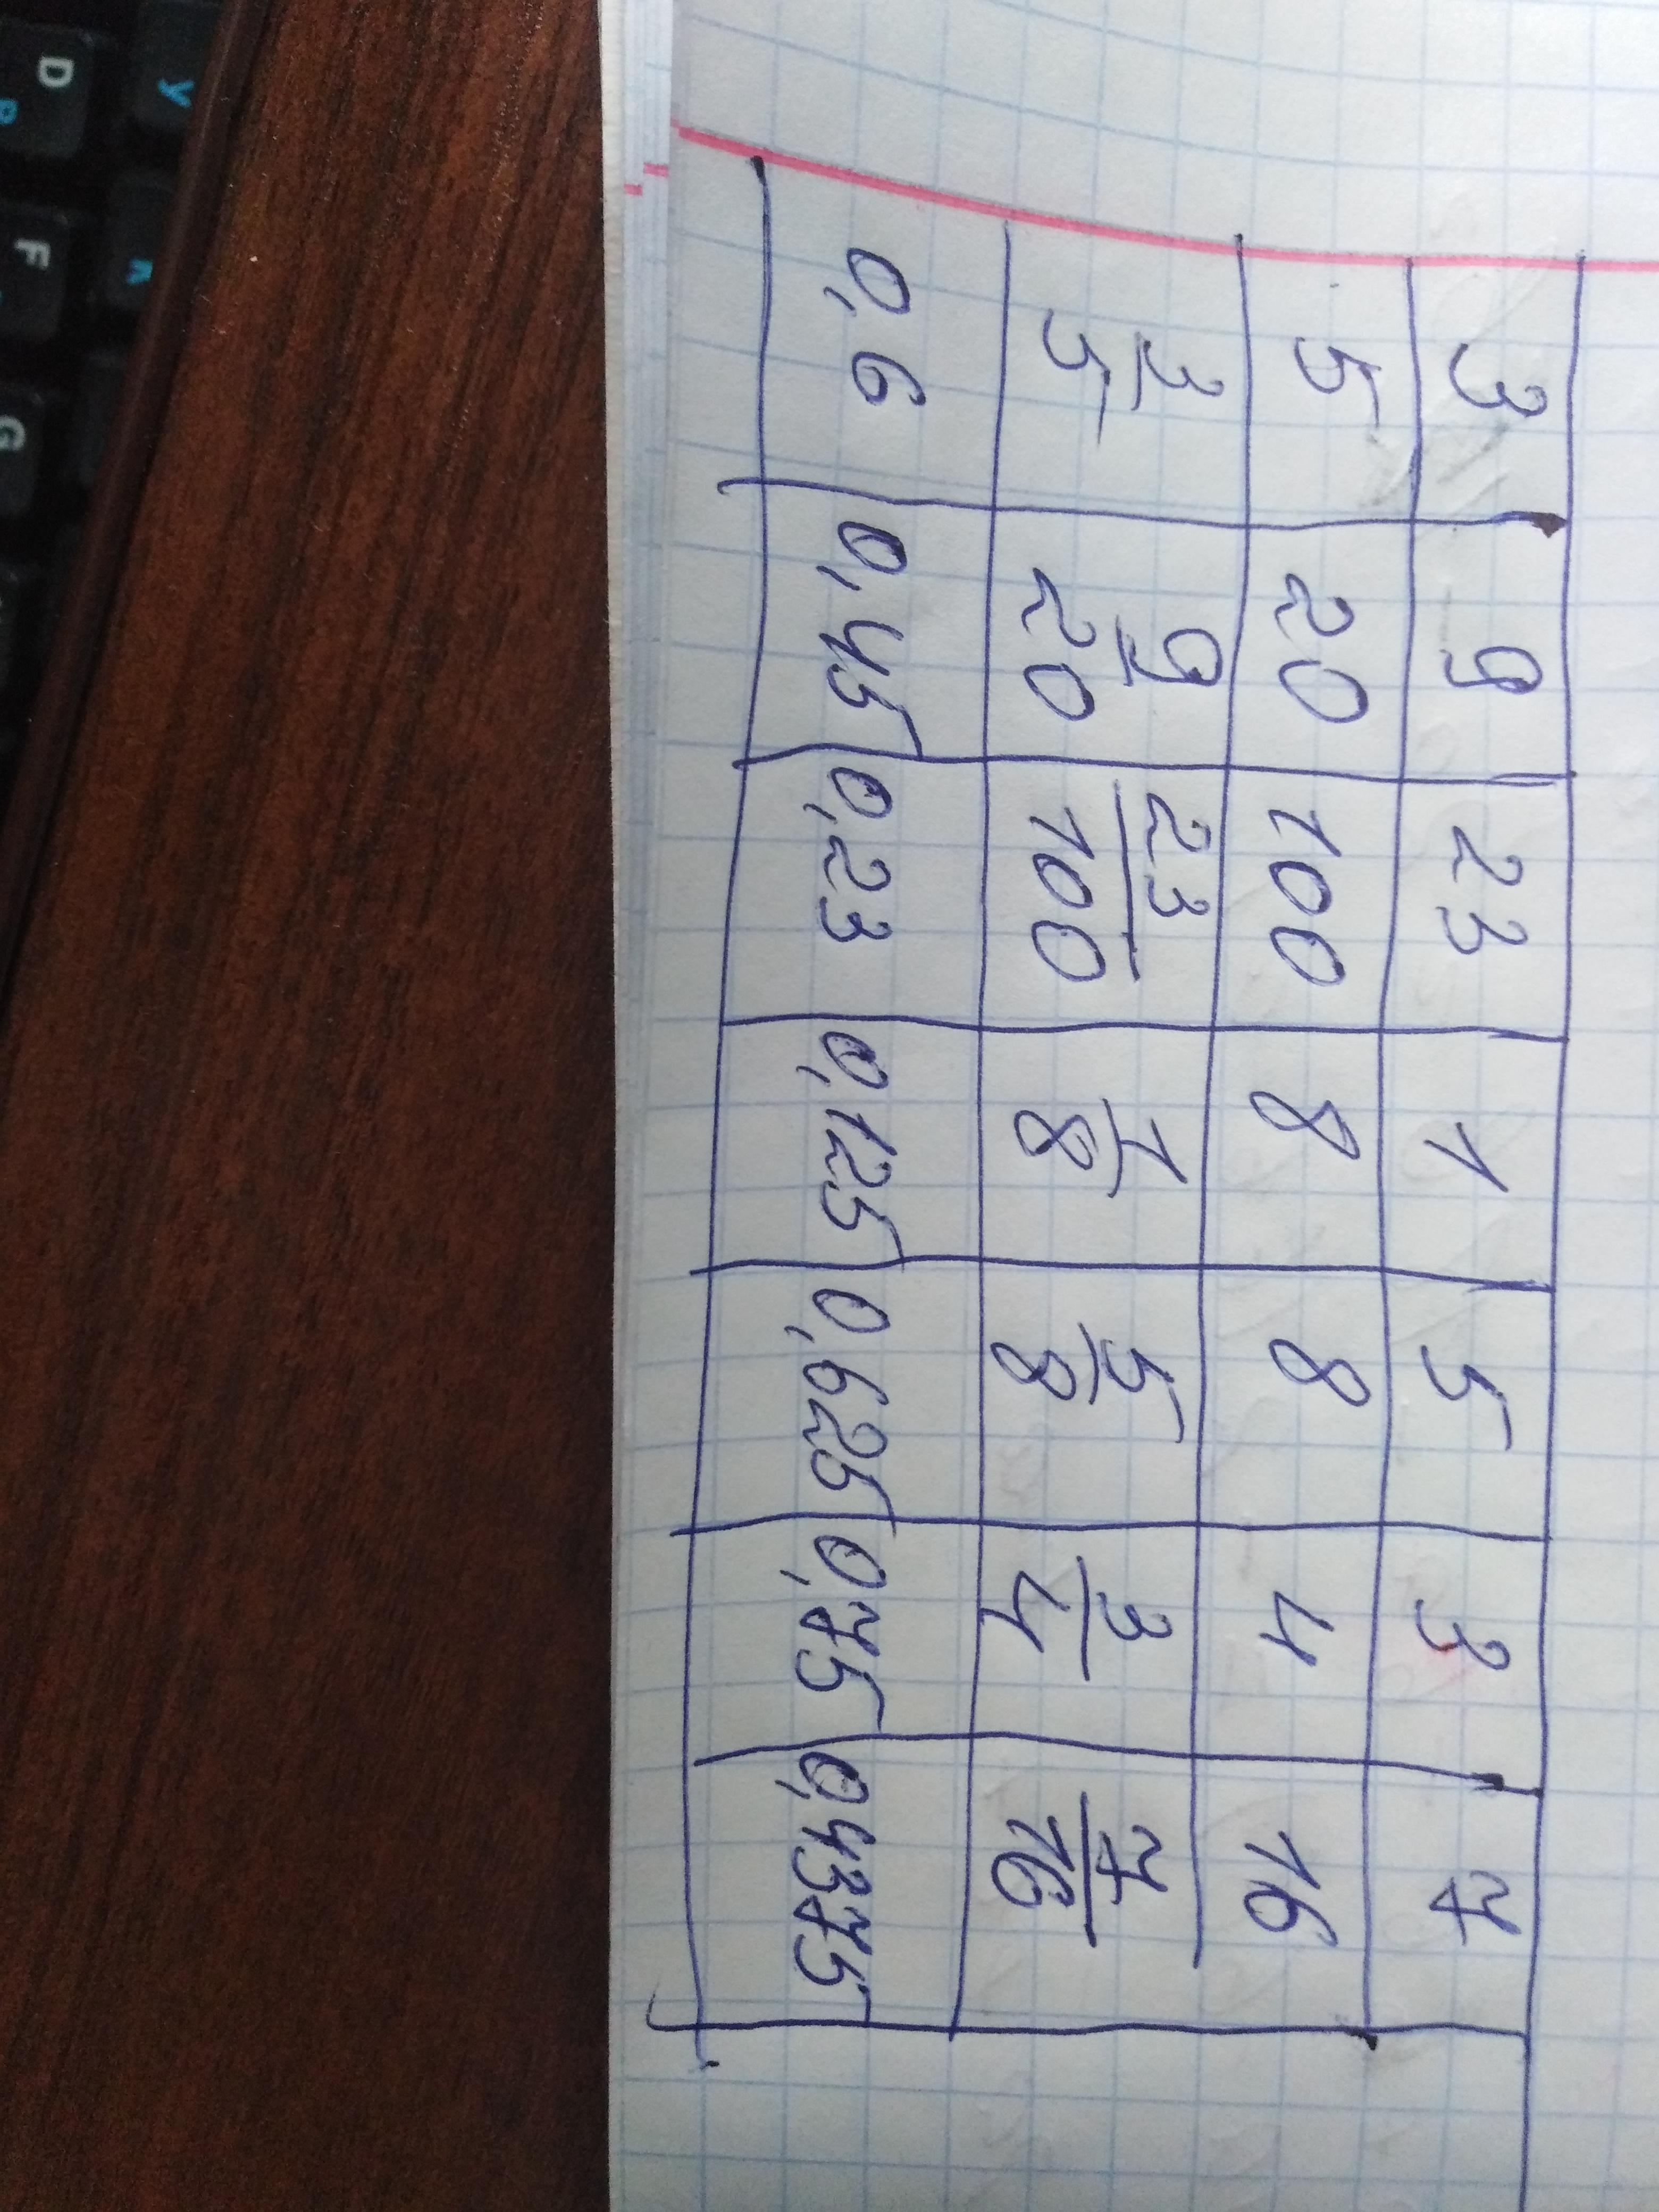 3 9 23 1 5 3 7
5 20 100 8 8 4 16
3/5 9/20 23/100 1/8 5/8 3/4 7/16
0,6 0,45 0,23 0,125 0,625 0,75 0,4375
У
D
F
G